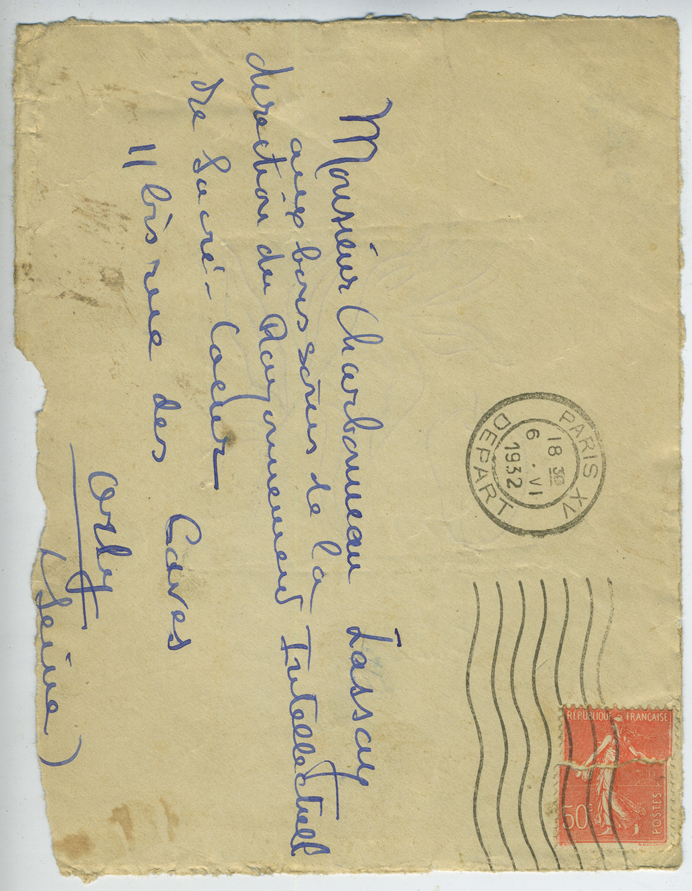 Monsieur Charbonneau Lassay
aux bons soins de la
direction du Rayonnement Intellectuel
du Sacré-Coeur
11 bis rue des Caves
Orly
(Seine)
PARIS XV
18 30
6 · VI
1932
DEPART
REPUBLIQUE FRANÇAISE
50c
POSTES